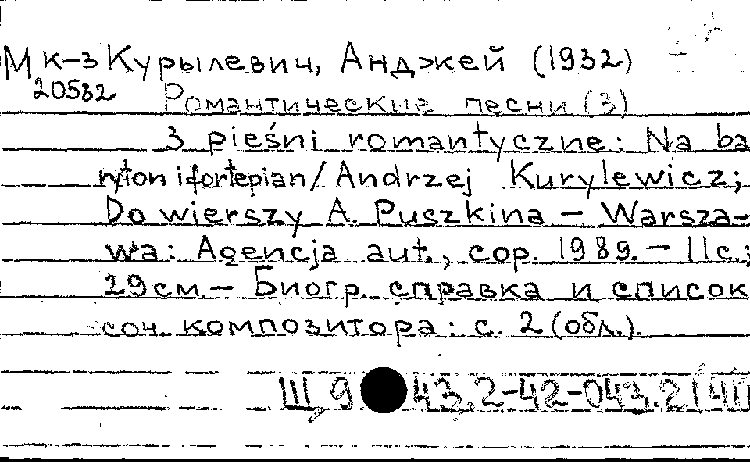 М к-з Курылевич, Анджей (1932)
20582 Романтические песни (3)
3 pieśni romantyczne: Na ba
ryton i fortepian / Andrzej Kurylewicz;
Do wierszy A. Puszkina – Warsza-
wa: Agencja aut., cop. 1989. – 11 c.;
29 см. – Биогр. справка и список
соч. композитора: с. 2 (обл.).
Ш,9 43.2-42-043.2(4П